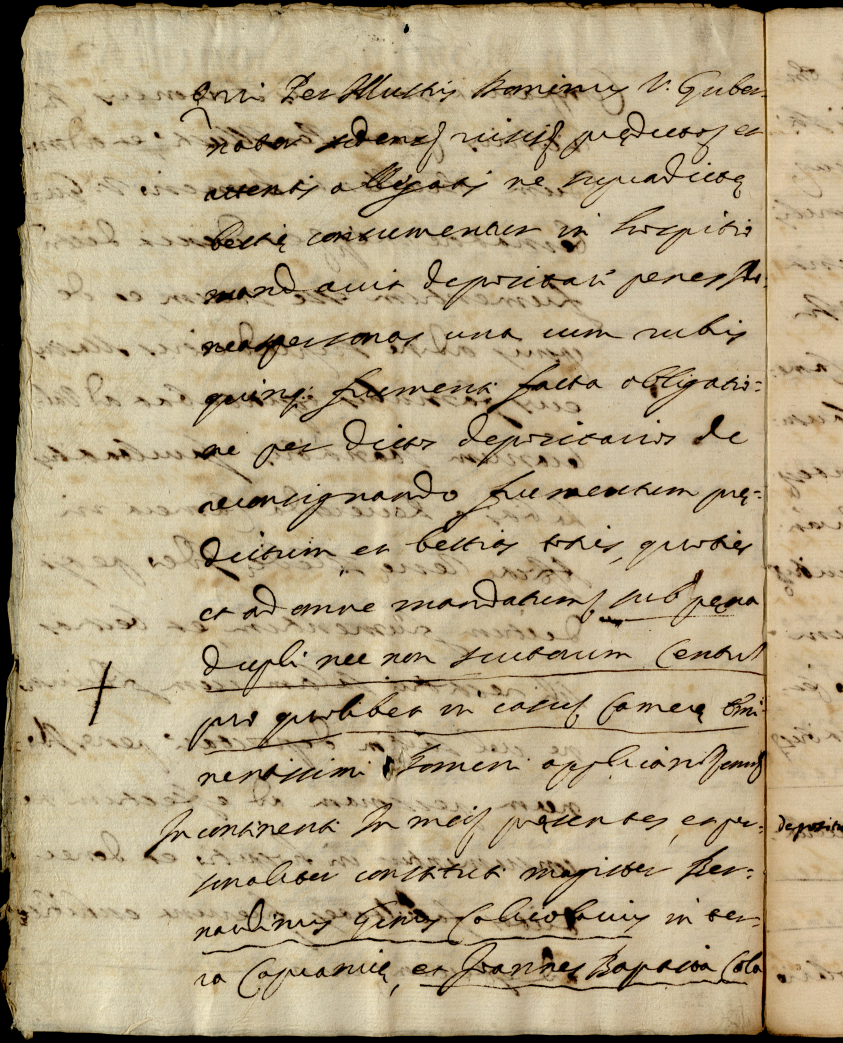 Qui Per Illustris Dominus V. Guber-
nator sedens visis predictis et
attentis allegatis ne supradictę
bestię consumentur in hospitio
mandavit depositari penes Ido-
neas personas una cum rubis
quinq: frumenti facta obligatio=
ne per dictos depositarios de
reconsignando frumentum prę=
dictum et bestias toties, quoties
et ad omne mandatum, sub pęna
dupli nec non scutorum Centum
pro quolibet in casu Camerę Emi-
nentissimi Domini applicand
In continenti In mei presentes, et per-
sonaliter constituti magister Ber-
nardinus Caliolarius in ter-
ra Capranicę, et Joannes Baptista Cola
deposit